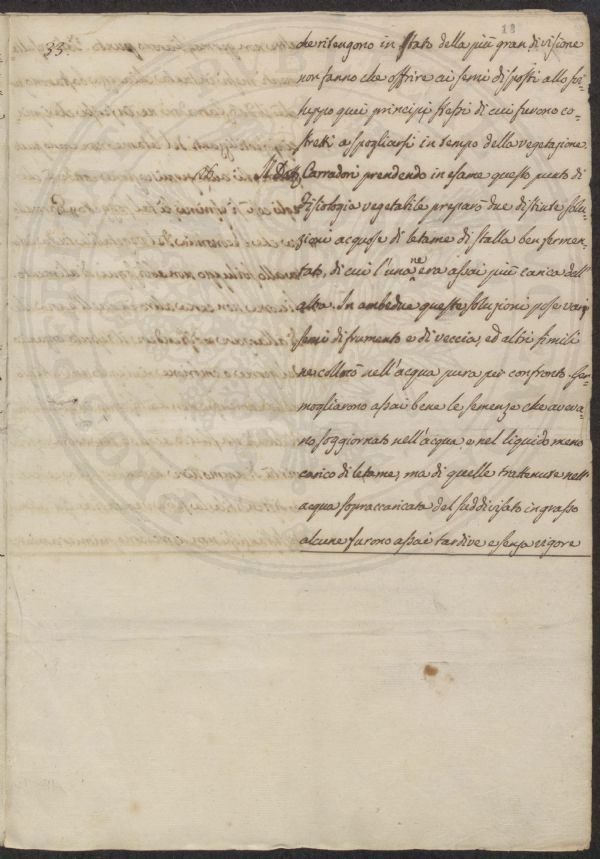 33.
18
che ritengono in stato della più gran divisione
non fanno che offrire ai semi disposti allo svi-
luppo quei principj stessi di cui furono co-
stretti a spogliarsi in tempo della vegetazione
Il Dott. Carradori prendendo in esame questo punto di
Fisiologia vegetabile preparò due distinte solu-
zioni acquose di letame di stalla ben fermen-
tato, di cui l'una ne era assai più carica dell'
altra. In ambedue queste soluzioni pose varj
semi di frumento e di veccia, ed altri simili
ne collocò nell'acqua pura per confronto. Ger-
mogliarono assai bene le semenze che aveva-
no soggiornato nell'acqua e nel liquido meno
carico di letame, ma di quelle trattenute nell'
acqua sopraccaricata del suddivisato ingrasso
alcune furono assai tardive e senza vigore